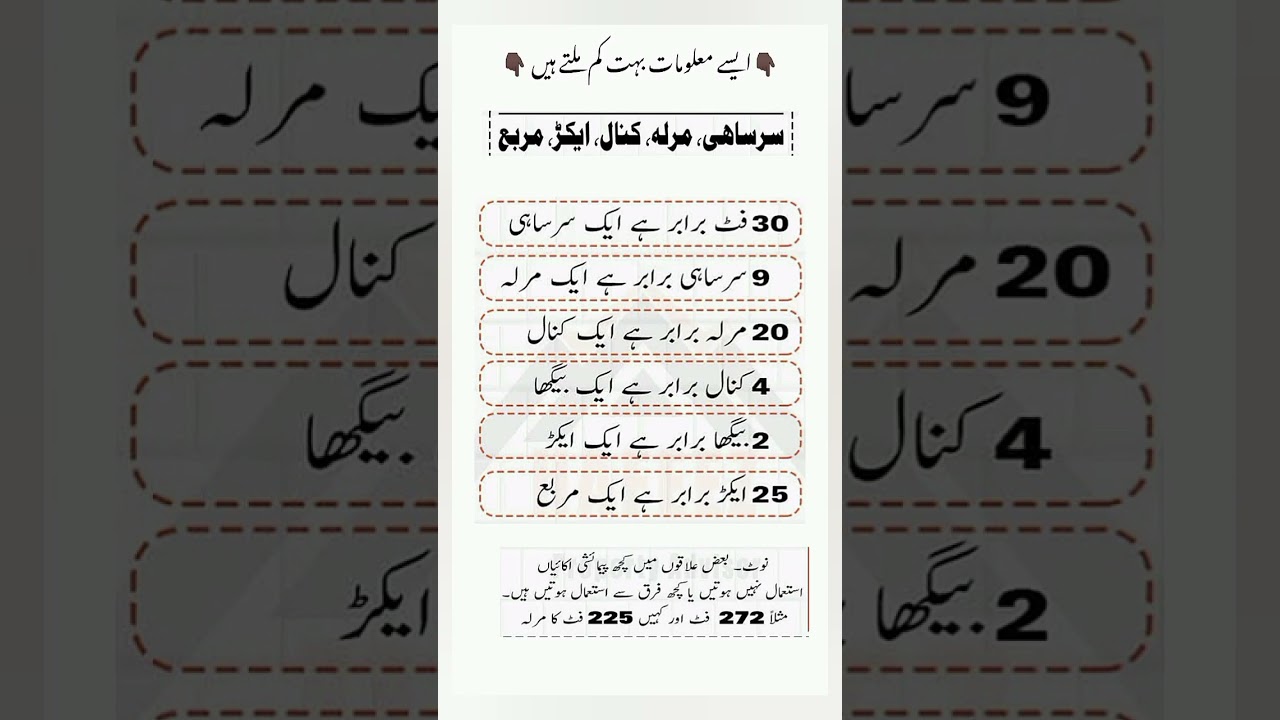 👇🏿 ایسے معلومات بہت کم ملتے ہیں 👇🏿
سرساھی، مرلہ، کنال، ایکڑ، مربع
30 فٹ برابر ہے ایک سرساہی
9 سرساہی برابر ہے ایک مرلہ
20 مرلہ برابر ہے ایک کنال
4 کنال برابر ہے ایک بیگھا
2 بیگھا برابر ہے ایک ایکڑ
25 ایکڑ برابر ہے ایک مربع
نوٹ۔ بعض علاقوں میں کچھ پیمائشی اکائیاں
استعمال نہیں ہوتیں یا کچھ فرق سے استعمال ہوتیں ہیں۔
مثلاً 272 فٹ اور کہیں 225 فٹ کا مرلہ